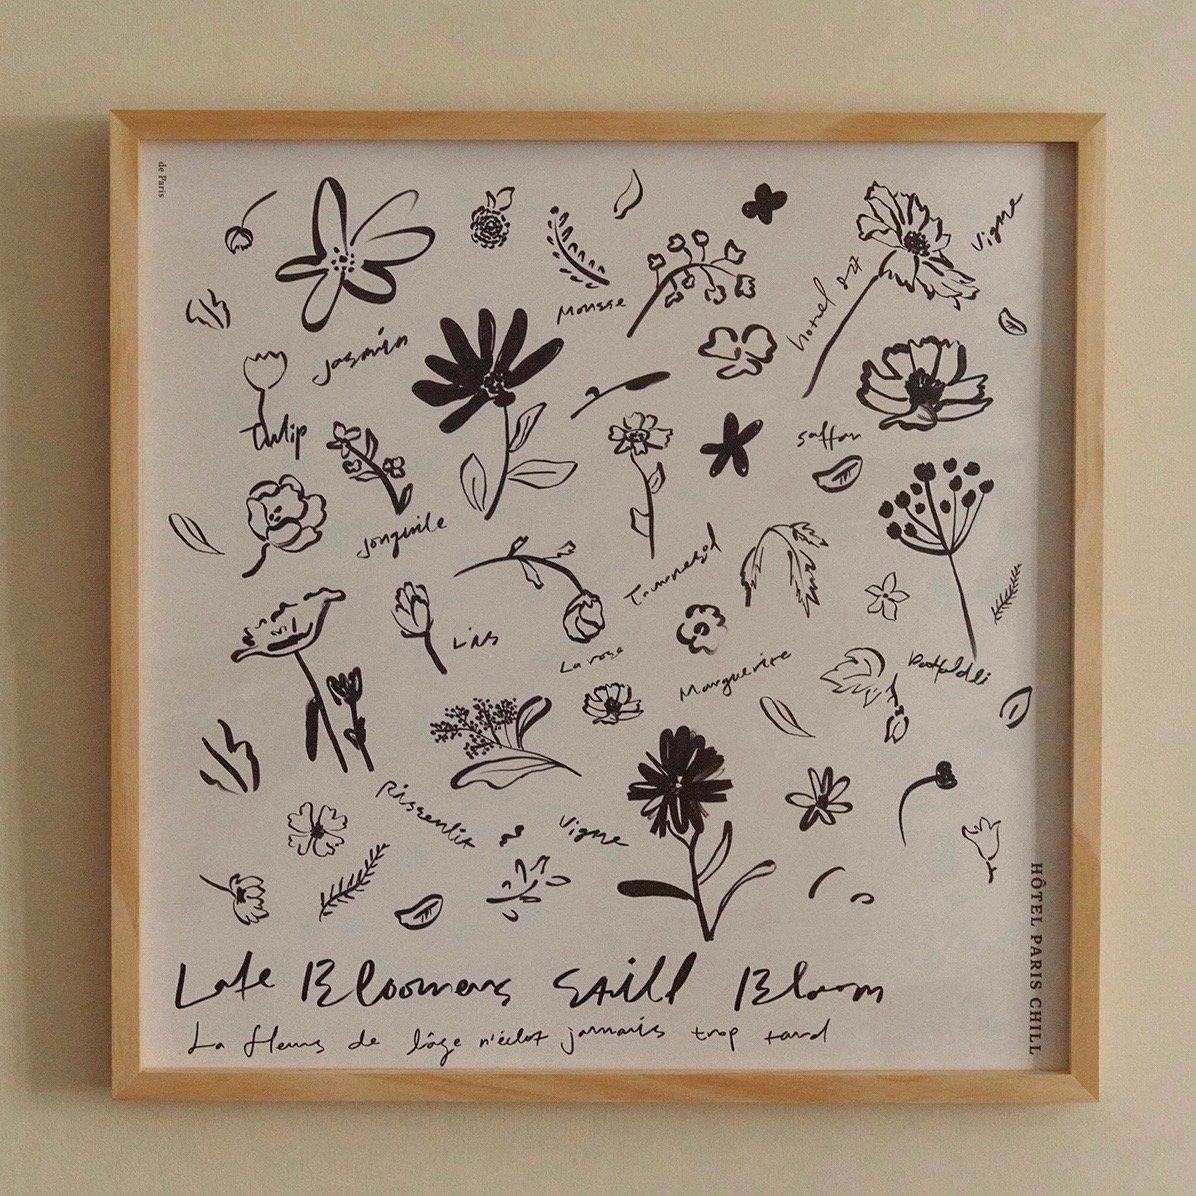 de Paris
Vigne
hotel 827
Mousse
Jasmin
Tulip
saffan
Jonquile
Lins
La rose
Marguerite
Vigne
Late Bloomers Still Bloom
La fleurs de l'âge n'éclot jamais trop tard
HÔTEL PARIS CHILL